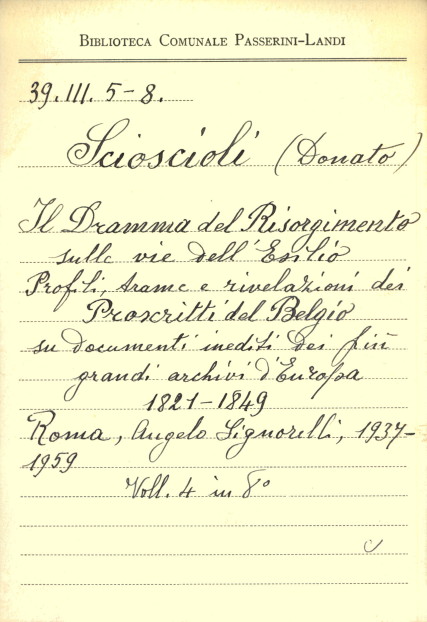 BIBLIOTECA COMUNALE PASSERINI-LANDI
39.III.5-8.
Scioscioli (Donato)
Il Dramma del Risorgimento
sulle vie dell'Esilio
Profili, trame e rivelazioni dei
Proscritti del Belgio
su documenti inediti dei più
grandi archivi d'Europa
1821-1849
Roma, Angelo Signorelli, 1937-
1959
Voll. 4 in 8°